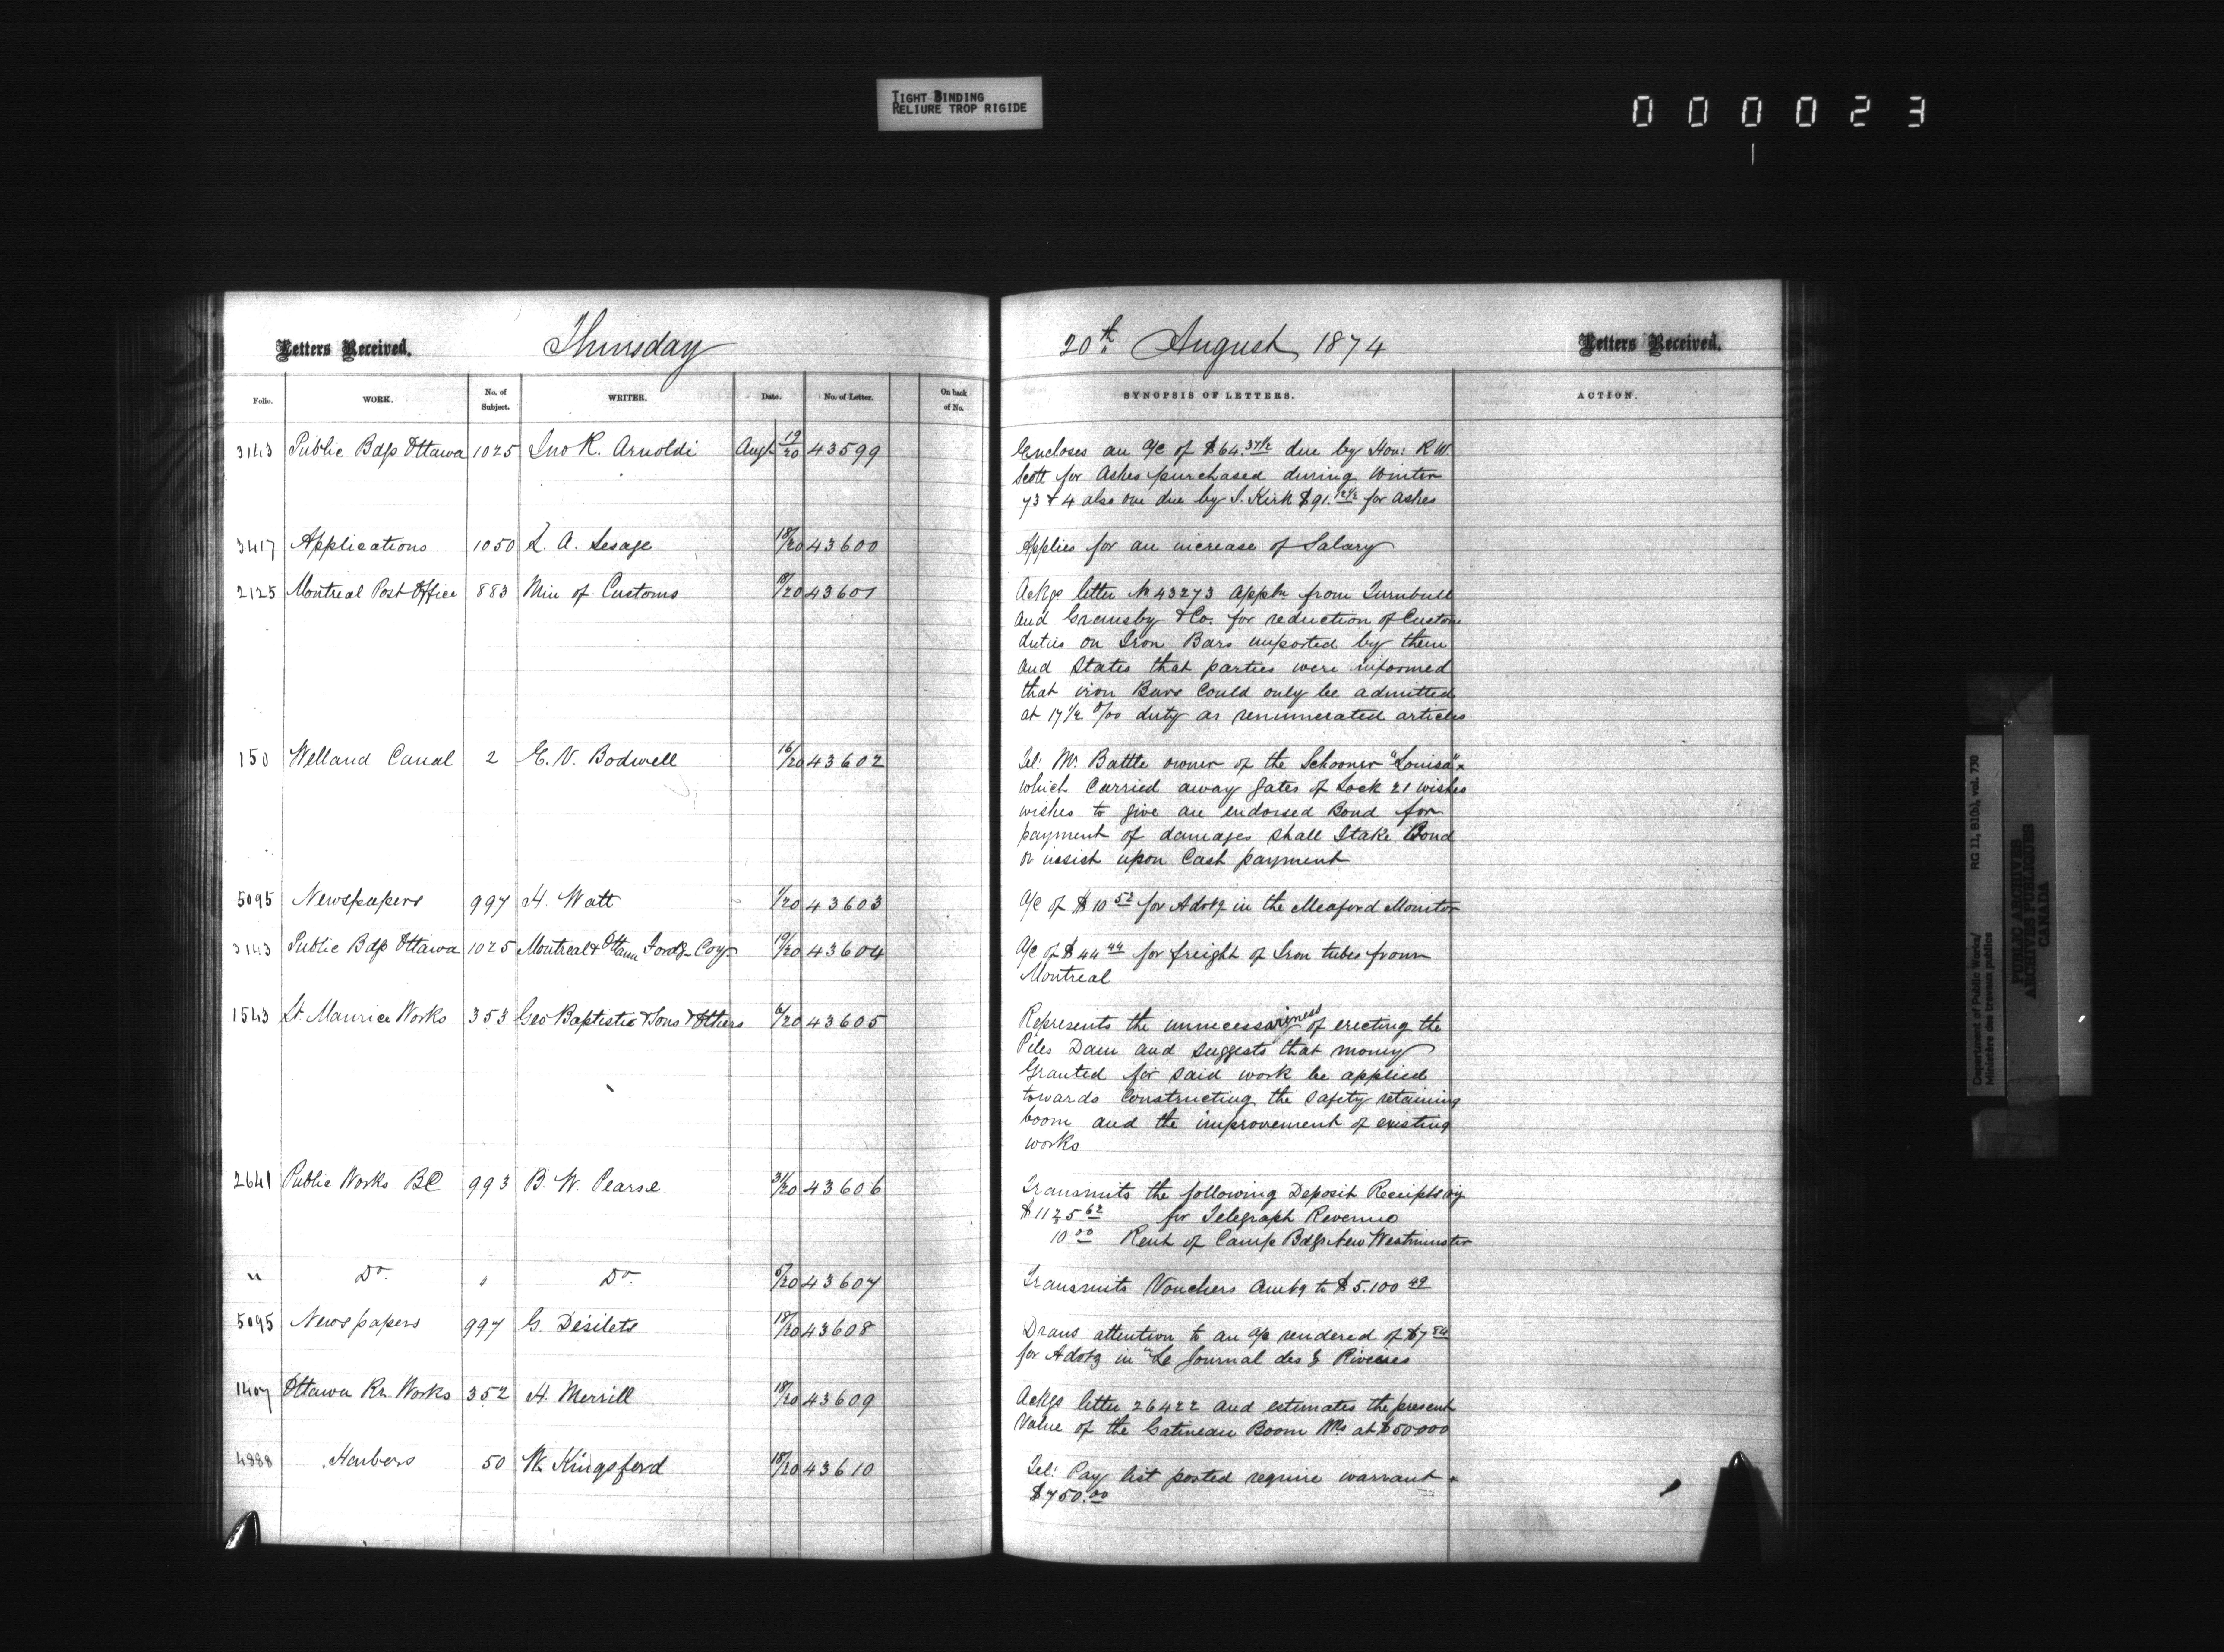 TIGHT BINDING
RELIURE TROP RIGIDE
000023
Letters Received. Thursday 20th August 1874 Letters Received.
Folio. WORK. No. of Subject. WRITER. Date. No. of Letter. On back of No. SYNOPSIS OF LETTERS. ACTION.
3143 Public Bdgs Ottawa 1025 Jno R. Arnoldi Augt 19/20 43599 Encloses an a/c of $64.37½ due by Hon: R W.
Scott for Ashes purchased during Winter
73 & 4 also one due by S. Kirk $91.12½ for Ashes
3417 Applications 1050 L. A. Lesage 18/20 43600 Applies for an increase of Salary
2125 Montreal Post Office 883 Min of Customs 18/20 43601 Ackgs letter No 43273 appln from Turnbull
and Gremsby & Co. for reduction of Custom
duties on Iron Bars imported by them
and States that parties were informed
that iron Bars could only be admitted
at 17½ o/oo duty as renumerated articles
150 Welland Canal 2 E. V. Bodwell 16/20 43602 Tel: Mr. Battle owner of the Schooner "Louisa"
which carried away gates of Lock 21 wishes
wishes to give an endorsed Bond for
payment of damages shall I take Bond
or insist upon Cash payment
5095 Newspapers 997 H. Watt 1/20 43603 a/c of $10 52 for Advtg in the Meaford Monitor
3143 Public Bdgs Ottawa 1025 Montreal & Ottawa Fordg Coy 19/20 43604 a/c of $44 44 for freight of Iron tubes from
Montreal
1543 St. Maurice Works 353 Geo Baptiste & Sons & Others 6/20 43605 Represents the unnecessariness of erecting the
Piles Dam and suggests that money
Granted for said work be applied
towards Constructing the safety retaining
boom and the improvement of existing
works
2641 Public Works BC 993 B. W. Pearse 31/20 43606 Transmits the following Deposit Receipts viz
$1125 62 for Telegraph Revenue
10 00 Rent of Camp Bdgs New Westminster
" Do. " Do. 5/20 43607 Transmits Vouchers amtg to $5.100 49
5095 Newspapers 997 G. Désilets 18/20 43608 Draws attention to an a/c rendered of $7 84
for Advtg in "Le Journal des 3 Rivières
1407 Ottawa Rr. Works 352 H. Merrill 18/20 43609 Ackgs letter 26422 and estimates the present
Value of the Gatineau Boom Wks at $50000
4888 Harbors 50 W. Kingsford 18/20 43610 Tel: Pay list posted require warrant
$750.00
Department of Public Works/ RG 11, B1(b), vol. 730
Ministère des travaux publics
PUBLIC ARCHIVES
ARCHIVES PUBLIQUES
CANADA